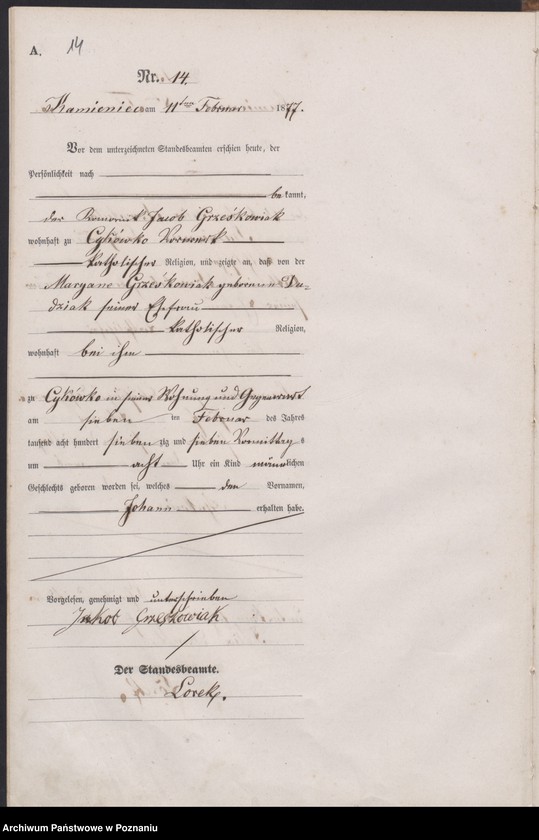 A. 14
Nr. 14.
Kamieniec am 11ten Februar 1877.
Vor dem unterzeichneten Standesbeamten erschien heute, der
Persönlichkeit nach
bekannt,
der Jacob Grześkowiak
wohnhaft zu Cykówko
katholischer Religion, und zeigte an, daß von der
Maryane Grześkowiak geborenen Du-
dziak seiner Ehefrau
katholischer Religion,
wohnhaft bei ihm
zu Cykówko in seiner Wohnung und Gegenwart
am sieben im Februar des Jahres
tausend acht hundert siebenzig und sieben Vormittags
um acht Uhr ein Kind männlichen
Geschlechts geboren worden sei, welches den Vornamen,
Johann erhalten habe.
Vorgelesen, genehmigt und unterschrieben
Jakob Grzeskowiak
Der Standesbeamte.
Lorek.
Archiwum Państwowe w Poznaniu